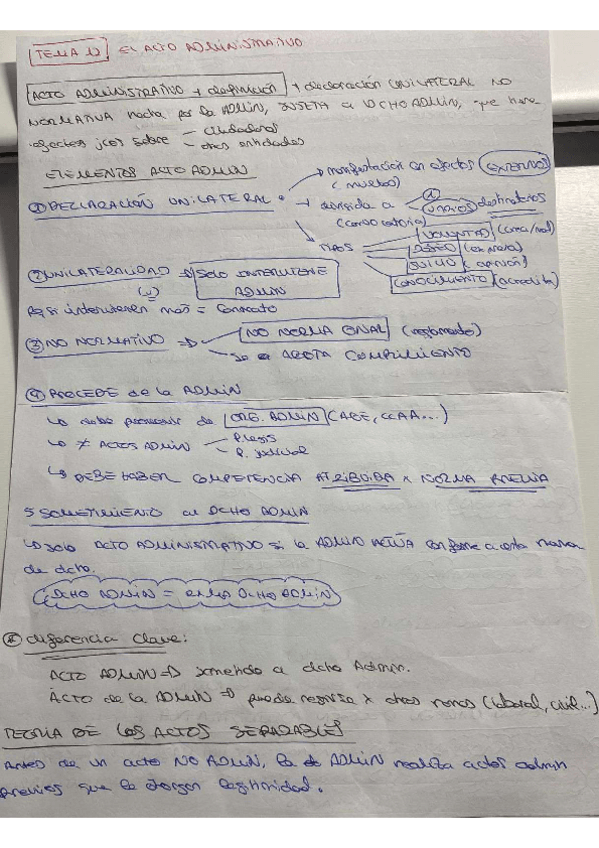 TEMA 12 EL ACTO ADMINISTRATIVO
ACTO ADMINISTRATIVO → definición → declaración UNILATERAL NO
NORMATIVA hecha por la ADMIN, SUJETA al DCHO ADMIN, que tiene
efectos jcos sobre – ciudadanos
– otras entidades
ELEMENTOS ACTO ADMIN
① DECLARACIÓN UNILATERAL
→ manifestación con efectos EXTERNOS
→ dirigida a 1
VARIOS destinatarios
(convocatoria)
→ TIPOS
VOLUNTAD
DESEO
JUICIO (opinión)
CONOCIMIENTO (acredita)
② UNILATERALIDAD ⇒ SOLO INTERVIENE
ADMIN
si intervienen más = contrato
③ NO NORMATIVO ⇒ NO NORMA GRAL (reglamento)
se AGOTA CUMPLIMIENTO
④ PROCEDE de la ADMIN
↳ debe provenir de ORG. ADMIN (AGE, CCAA...)
↳ ≠ ACTOS ADMIN
P. judicial
↳ DEBE HABER COMPETENCIA ATRIBUIDA x NORMA PREVIA
5 SOMETIMIENTO al DCHO ADMIN
↳ solo ACTO ADMINISTRATIVO si la ADMIN ACTÚA conforme a esta rama
de dcho.
DCHO ADMIN = DCHO ADMIN
diferencia clave:
ACTO ADMIN ⇒ sometido a dcho Admin.
ACTO de la ADMIN ⇒ puede regirse x otras ramas (laboral, civil...)
TEORIA DE LOS ACTOS SEPARABLES
Antes de un acto NO ADMIN, la ADMIN realiza actos admin
previos que le otorgan legitimidad.